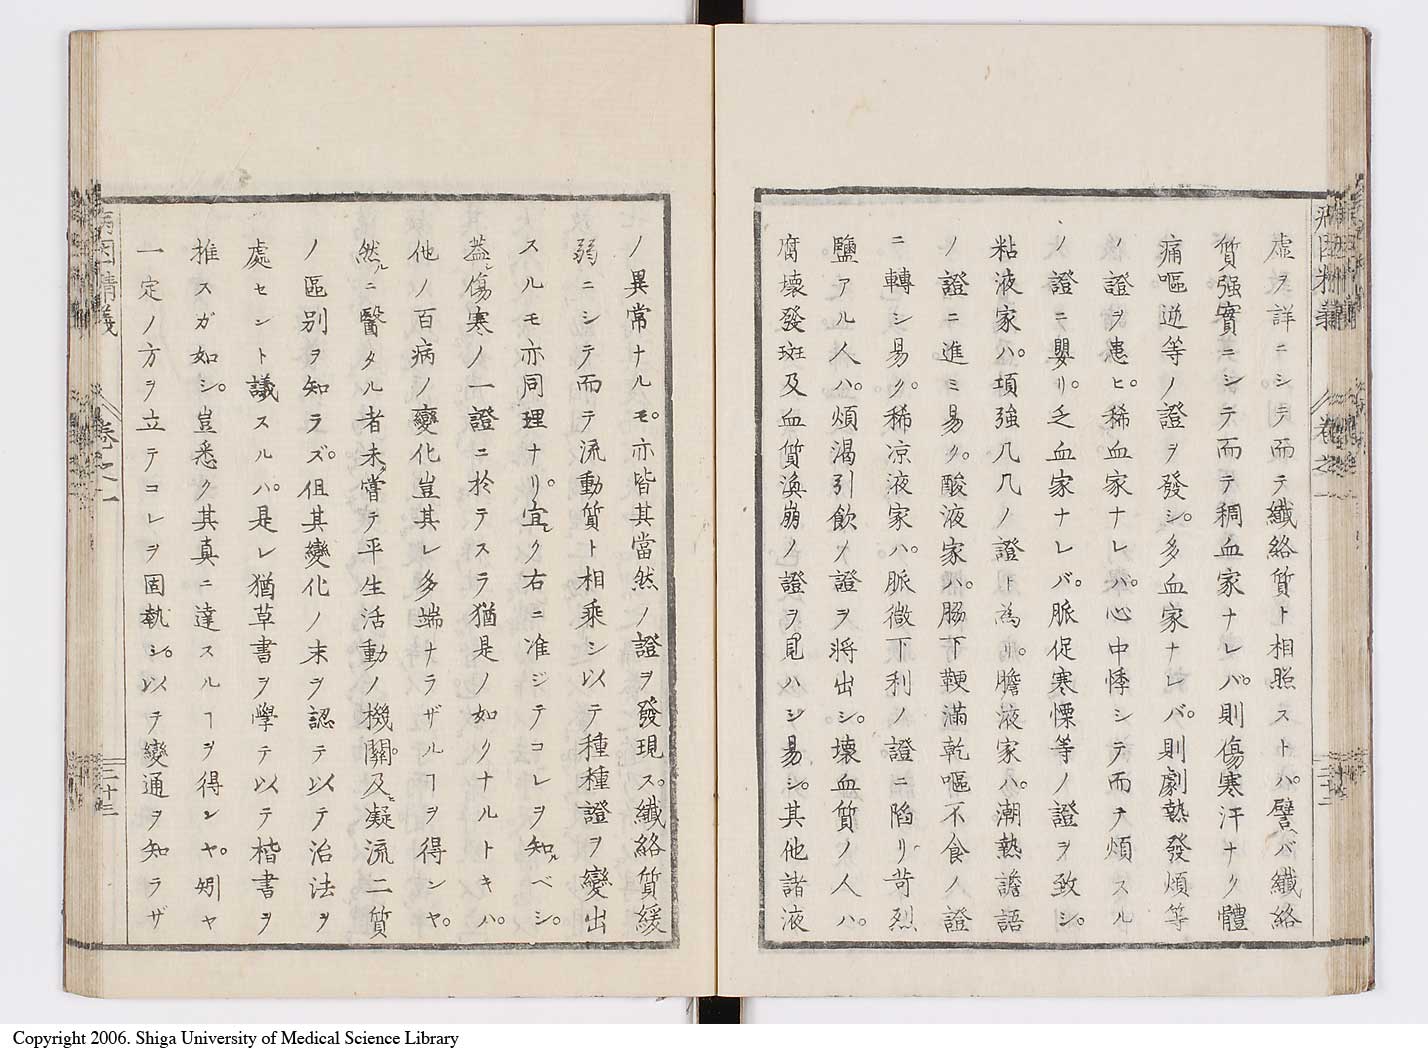 虚ヲ詳ニシテ而テ纎絡質ト相照ストハ。譬バ纎絡
質强實ニシテ而テ稠血家ナレバ。則傷寒汗ナク體
痛嘔逆等ノ證ヲ發シ。多血家ナレバ。則劇熱發煩等
ノ證ヲ患ヒ。稀血家ナレバ。心中悸シテ而テ煩スル
ノ證ニ嬰リ。乏血家ナレバ。脈促寒慄等ノ證ヲ致シ。
粘液家ハ。項強几几ノ證ト為リ。膽液家ハ。潮熱譫語
ノ證ニ進ミ易ク。酸液家ハ。膓下鞕滿乾嘔不食ノ證
ニ轉シ易ク。稀凉液家ハ。脈微下利ノ證ニ陷リ苛烈
鹽アル人ハ。煩渴引飲ノ證ヲ將出シ。壞血質ノ人ハ。
腐壞發斑及血質渙崩ノ證ヲ見ハシ易シ。其他諸液
ノ異常ナルモ。亦皆其當然ノ證ヲ發現ス。纎絡質緩
弱ニシテ而テ流動質ト相乘シ以テ種種證ヲ變出
スルモ亦同理ナリ。宜ク右ニ准ジテコレヲ知ルベシ。
蓋シ傷寒ノ一證ニ於テスラ猶是ノ如クナルトキハ。
他ノ百病ノ變化豈其レ多端ナラザルヿヲ得ンヤ。
然ルニ醫タル者未ダ嘗テ平生活動ノ機關。及ヒ凝流二質
ノ區別ヲ知ラズ。但其變化ノ末ヲ認テ以テ治法ヲ
處セント議スルハ。是レ猶草書ヲ學テ以テ楷書ヲ
推スガ如シ。豈悉ク其真ニ達スルヿヲ得ンヤ。矧ヤ
一定ノ方ヲ立テコレヲ固執シ。以テ變通ヲ知ラザ
病因精義
卷之一
二十三